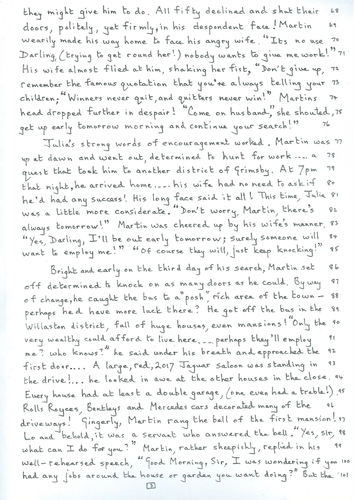 they might give him to do. All fifty declined and shut their 68
doors, politely, yet firmly, in his despondent face! Martin 69
wearily made his way home to face his angry wife. "It's no use 70
Darling (trying to get round her!) nobody wants to give me work!" 71
His wife almost flied at him, shaking her fist, "Don't give up, 72
remember the famous quotation that you're always telling your 73
children; "Winners never quit, and quitters never win!" Martins 74
head dropped further in despair! "Come on husband," she shouted, 75
get up early tomorrow morning and continue your search!" 76
Julia's strong words of encouragement worked. Martin was 77
up at dawn and went out, determined to hunt for work .... a 78
quest that took him to another district of Grimsby. At 7pm 79
that night, he arrived home .... his wife had no need to ask if 80
he'd had any success! His long face said it all! This time, Julia 81
was a little more considerate. "Don't worry, Martin, there's 82
always tomorrow!" Martin was cheered up by his wife's manner. 83
"Yes, Darling, I'll be out early tomorrow; surely someone will 84
want to employ me!" "Of course they will, just keep knocking!" 85
Bright and early on the third day of his search, Martin set 86
off determined to knock on as many doors as he could. By way 87
of change, he caught the bus to a "posh", rich area of the town - 88
perhaps he'd have more luck there? He got off the bus in the 89
Willaston district, full of huge houses, even mansions! "Only the 90
very wealthy could afford to live here .... perhaps they'll employ 91
me? who knows?" he said under his breath and approached the 92
first door.... A large, red, 2017 Jaguar saloon was standing in 93
the drive!... he looked in awe at the other houses in the close. 94
Every house had at least a double garage, (one even had a treble!) 95
Rolls Royces, Bentleys and Mercedes cars decorated many of the 96
driveways! Gingerly, Martin rang the bell of the first mansion! 97
Lo and behold, it was a servant who answered the bell. "Yes, sir, 98
what can I do for you?" Martin, rather sheepishly, replied in his 99
well-rehearsed speech, "Good Morning, Sir, I was wondering if you 100
had any jobs around the house or garden you want doing?" But the 101